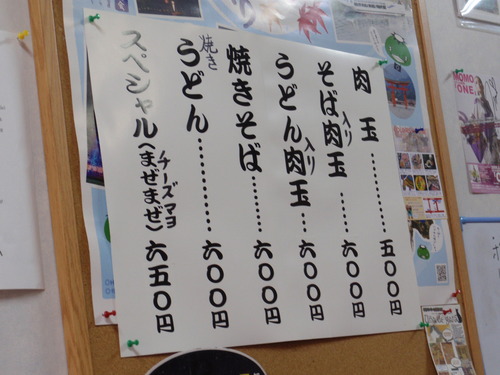 肉玉………五〇〇円
そば入り肉玉……六〇〇円
うどん入り肉玉…六〇〇円
焼きそば………六〇〇円
焼きうどん…………六〇〇円
スペシャル(まぜまぜ)チーズマヨ六五〇円
MOMO
ONE